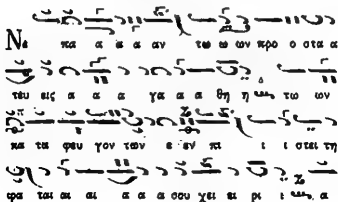 Νε πα α α α αν τω ω ων προ ο στα α
τευ εις α α α γα α α θη η τω ων
κα τα φευ γον των ε εν πι ι ι στει τη
ρα ται αι αι α α α σου χει ει ρι ι α